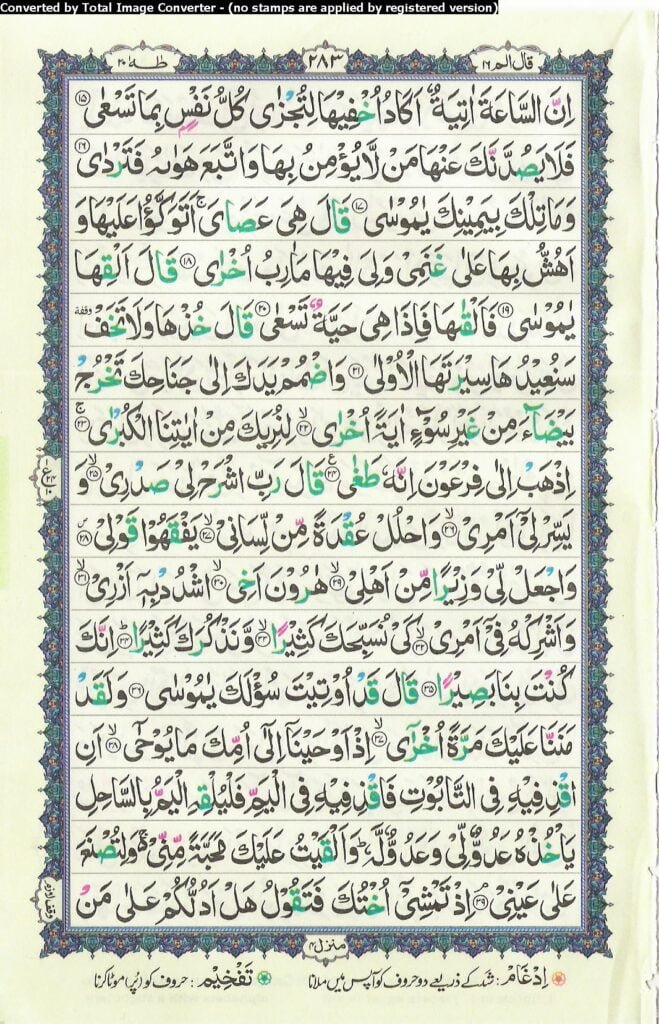 Converted by Total Image Converter - (no stamps are applied by registered version)
قال الم ١٦ ٢٨٣ طٰهٰ ٢٠
اِنَّ السَّاعَةَ اٰتِيَةٌ اَكَادُ اُخْفِيْهَا لِتُجْزٰى كُلُّ نَفْسٍۭ بِمَا تَسْعٰى ﴿١٥﴾
فَلَا يَصُدَّنَّكَ عَنْهَا مَنْ لَّا يُؤْمِنُ بِهَا وَاتَّبَعَ هَوٰىهُ فَتَرْدٰى ﴿١٦﴾
وَمَا تِلْكَ بِيَمِيْنِكَ يٰمُوْسٰى ﴿١٧﴾ قَالَ هِىَ عَصَاىَ ۚ اَتَوَكَّؤُا عَلَيْهَا وَ
اَهُشُّ بِهَا عَلٰى غَنَمِىْ وَلِىَ فِيْهَا مَاٰرِبُ اُخْرٰى ﴿١٨﴾ قَالَ اَلْقِهَا
يٰمُوْسٰى ﴿١٩﴾ فَاَلْقٰىهَا فَاِذَا هِىَ حَيَّةٌ تَسْعٰى ﴿٢٠﴾ قَالَ خُذْهَا وَلَا تَخَفْ وقفة
سَنُعِيْدُهَا سِيْرَتَهَا الْاُوْلٰى ﴿٢١﴾ وَاضْمُمْ يَدَكَ اِلٰى جَنَاحِكَ تَخْرُجْ
بَيْضَآءَ مِنْ غَيْرِ سُوْٓءٍ اٰيَةً اُخْرٰى ﴿٢٢﴾ۙ لِنُرِيَكَ مِنْ اٰيٰتِنَا الْكُبْرٰى ﴿٢٣﴾ۚ
اِذْهَبْ اِلٰى فِرْعَوْنَ اِنَّهٗ طَغٰى ﴿٢٤﴾ع قَالَ رَبِّ اشْرَحْ لِىْ صَدْرِىْ ﴿٢٥﴾ۙ وَ
يَسِّرْ لِىْٓ اَمْرِىْ ﴿٢٦﴾ۙ وَاحْلُلْ عُقْدَةً مِّنْ لِّسَانِىْ ﴿٢٧﴾ۙ يَفْقَهُوْا قَوْلِىْ ﴿٢٨﴾ص
وَاجْعَلْ لِّىْ وَزِيْرًا مِّنْ اَهْلِىْ ﴿٢٩﴾ۙ هٰرُوْنَ اَخِى ﴿٣٠﴾ۙ اشْدُدْ بِهٖٓ اَزْرِىْ ﴿٣١﴾ۙ
وَاَشْرِكْهُ فِىْٓ اَمْرِىْ ﴿٣٢﴾ۙ كَىْ نُسَبِّحَكَ كَثِيْرًا ﴿٣٣﴾ۙ وَّنَذْكُرَكَ كَثِيْرًا ﴿٣٤﴾ؕ اِنَّكَ
كُنْتَ بِنَا بَصِيْرًا ﴿٣٥﴾ قَالَ قَدْ اُوْتِيْتَ سُؤْلَكَ يٰمُوْسٰى ﴿٣٦﴾ وَلَقَدْ
مَنَنَّا عَلَيْكَ مَرَّةً اُخْرٰٓى ﴿٣٧﴾ۙ اِذْ اَوْحَيْنَآ اِلٰٓى اُمِّكَ مَا يُوْحٰٓى ﴿٣٨﴾ۙ اَنِ
اقْذِفِيْهِ فِى التَّابُوْتِ فَاقْذِفِيْهِ فِى الْيَمِّ فَلْيُلْقِهِ الْيَمُّ بِالسَّاحِلِ
يَاْخُذْهُ عَدُوٌّ لِّىْ وَعَدُوٌّ لَّهٗ ؕ وَاَلْقَيْتُ عَلَيْكَ مَحَبَّةً مِّنِّىْ ۚ وَلِتُصْنَعَ
عَلٰى عَيْنِىْ ﴿٣٩﴾ۘ اِذْ تَمْشِىْٓ اُخْتُكَ فَتَقُوْلُ هَلْ اَدُلُّكُمْ عَلٰى مَنْ
منزل ٤
اِدْغَام: شد کے ذریعے دو حروف کو آپس میں ملانا تَفْخِيْم: حروف کو (پُر) موٹا کرنا